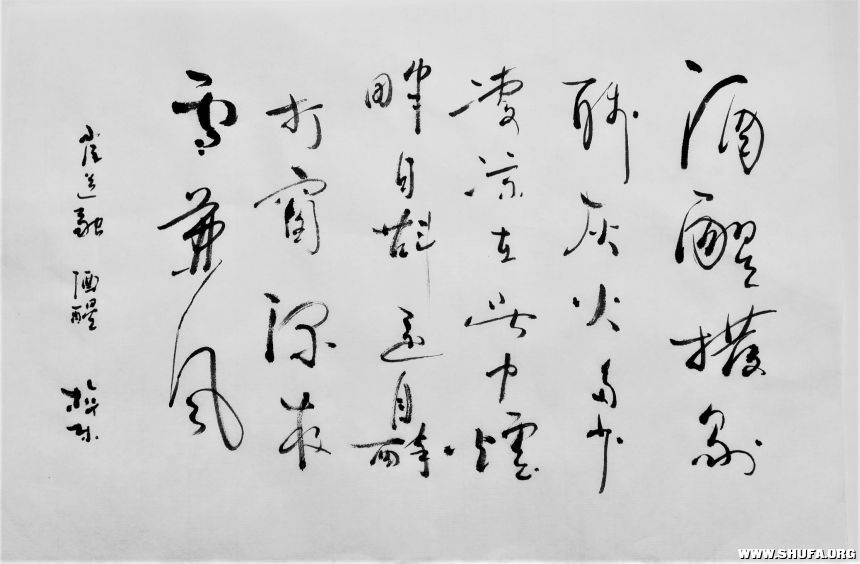 酒醒撥剔
殘灰火多少
淒涼在此中爐
畔自斟還自醉
打窗深夜
雪兼風
崔道融 酒醒
WWW.SHUFA.ORG